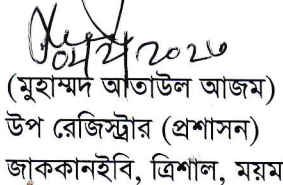 (মুহাম্মদ আতাউল আজম)
উপ রেজিস্ট্রার (প্রশাসন)
জাককানইবি, ত্রিশাল, ময়ম